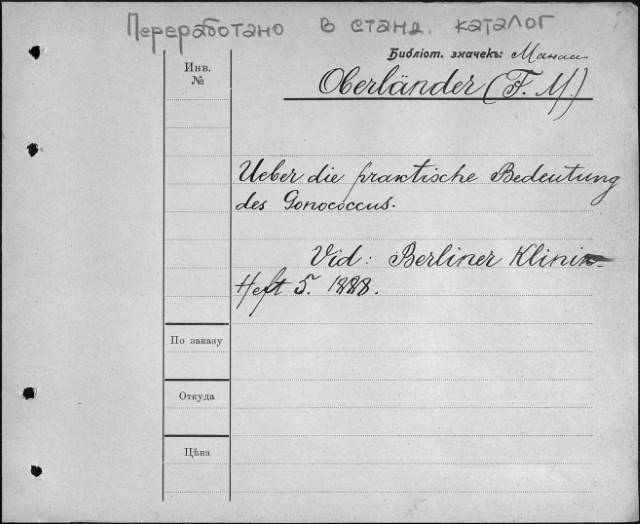 Переработано в станд. каталог
Библіот. значекъ:
Инв. №
Oberländer (F. M.)
Ueber die praktische Bedeutung
des Gonococcus.
Vid: Berliner Klinik
Heft 5. 1888.
По заказу
Откуда
Цѣна